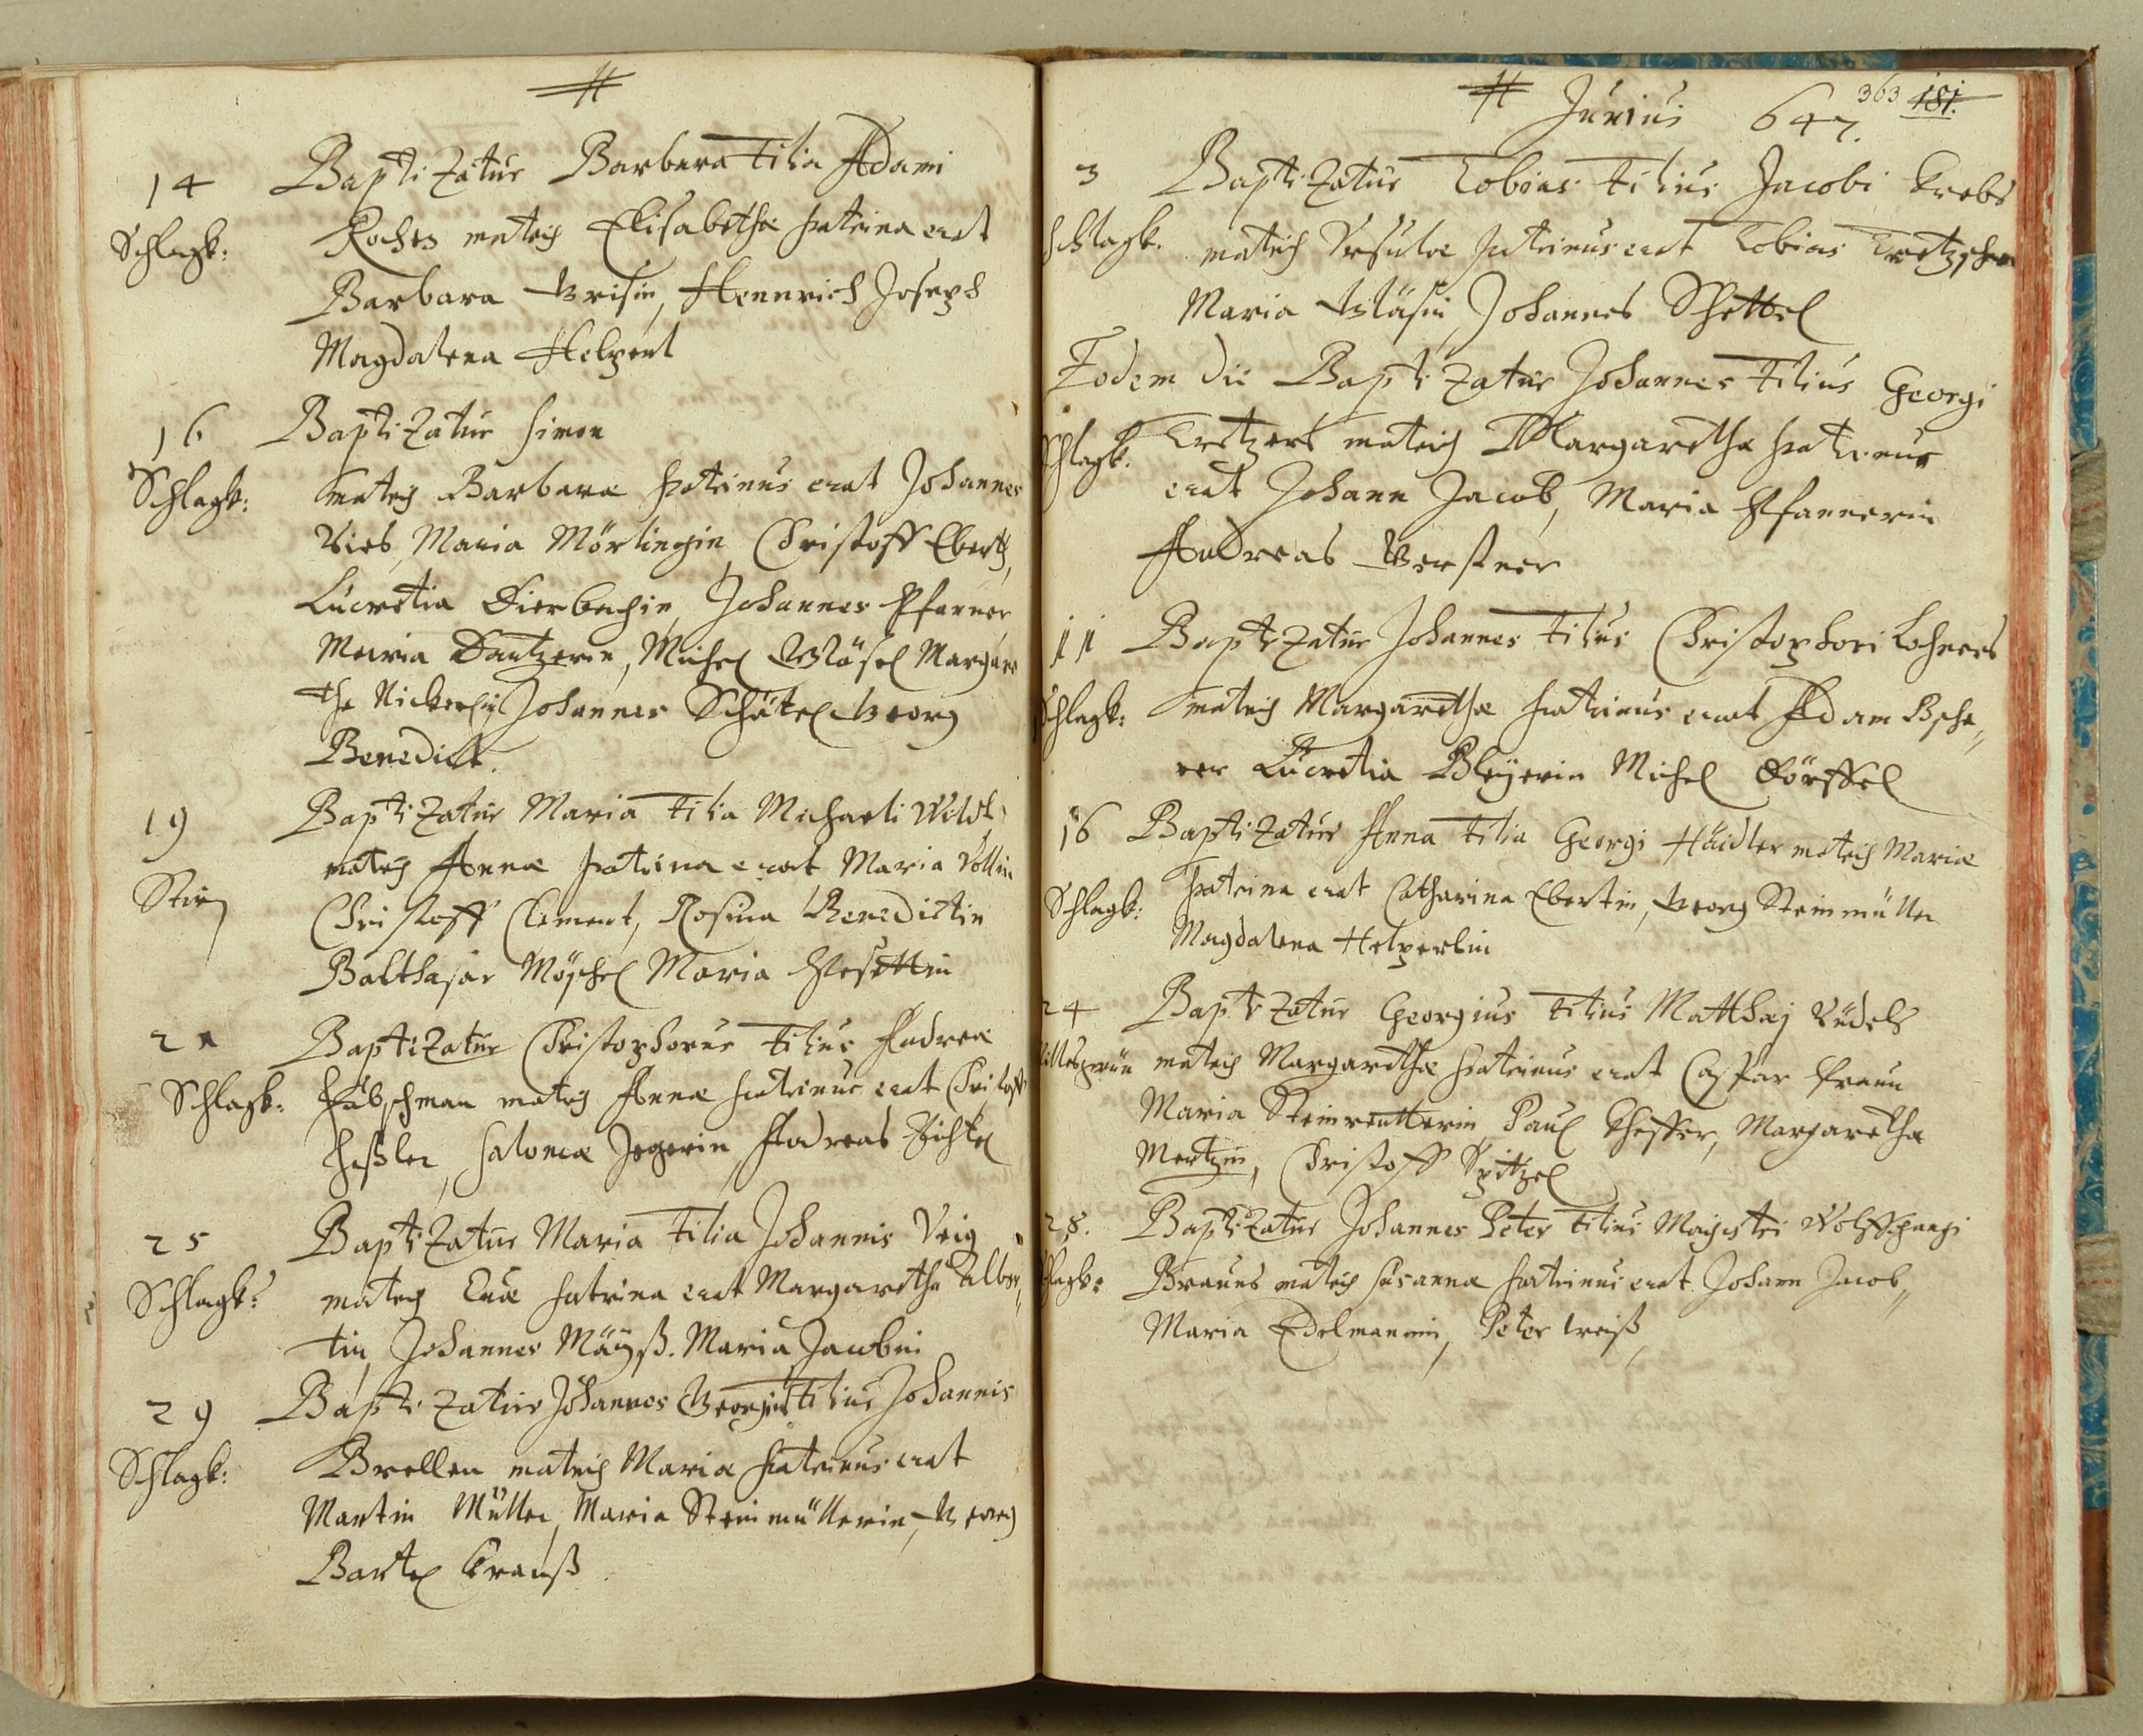 14 Baptizatur Barbara filia Adami
Schlagk: Kochen matris Elisabethæ patrina erat
Barbara Grisin, Hennrich Joseph
Magdalena Helpert
16 Baptizatur Simon
Schlagk: matris Barbaræ patrinus erat Johannes
Maria Mörlingin, Christoff Ebert,
Lucretia Dierbachin, Johannes Pfanner
Maria Dantzerin, Michel Gläsel Margare
tha Nickerlin Johannes Schätel Georg
Benedict.
19 Baptizatur Maria filia Michaeli Wildt
matris Annæ patrina erat Maria Vollin
Christoff Clement, Rosina Benedictin
Balthasar Möschel Maria
Baptizatur Christophorus filius Andreæ
Schlagk: Hübschman matris Annæ patrinus erat Christoff
Salomæ Jegerin Andreas Zickel
25 Baptizatur Maria filia Johannis Veig
Schlagk: matris Evæ patrina erat Margaretha Alber„
tin, Johannes Maria Jacobin
29 Baptizatur Johannes Georgius filius Johannis
Schlagk: Brellen matris Mariæ patrinus erat
Martin Müller, Maria Steinmüllerin, Georg
Bartel Krauß
Junius 647. 363 181.
3 Baptizatur Tobias filius Jacobi Krebs
Schlagk. matris Ursulæ patrinus erat Tobias
Maria Gläsin, Johannes Schettel
Eodem die Baptizatur Johannes filius Georgi
Schlagk. matris Margarethæ patrinus
erat Johann Jacob, Maria Pfannerin
Andreas Gerstner
11 Baptizatur Johannes filius Christophori Lochners
Schlagk: matris Margarethæ patrinus erat Adam
Lucretia Bleyerin Michel Dörffel
16 Baptizatur Anna filia Georgi Häidler matris Mariæ
Schlagk: patrina erat Catharina Ebertin, Georg Steinmüller
Magdalena Helperlin
24 Baptizatur Georgius filius Matthæj Rüdels
matris Margarethæ patrinus erat Caspar Braun
Maria Steinreutterin Paul Scheffer, Margaretha
Mertzin, Christoff Spitzel
28. Baptizatur Johannes Peter filius Magistri Wolffgangi
Brauns matris Susannæ patrinus erat Johann Jacob„
Maria Edelmannin, Peter Weiß,